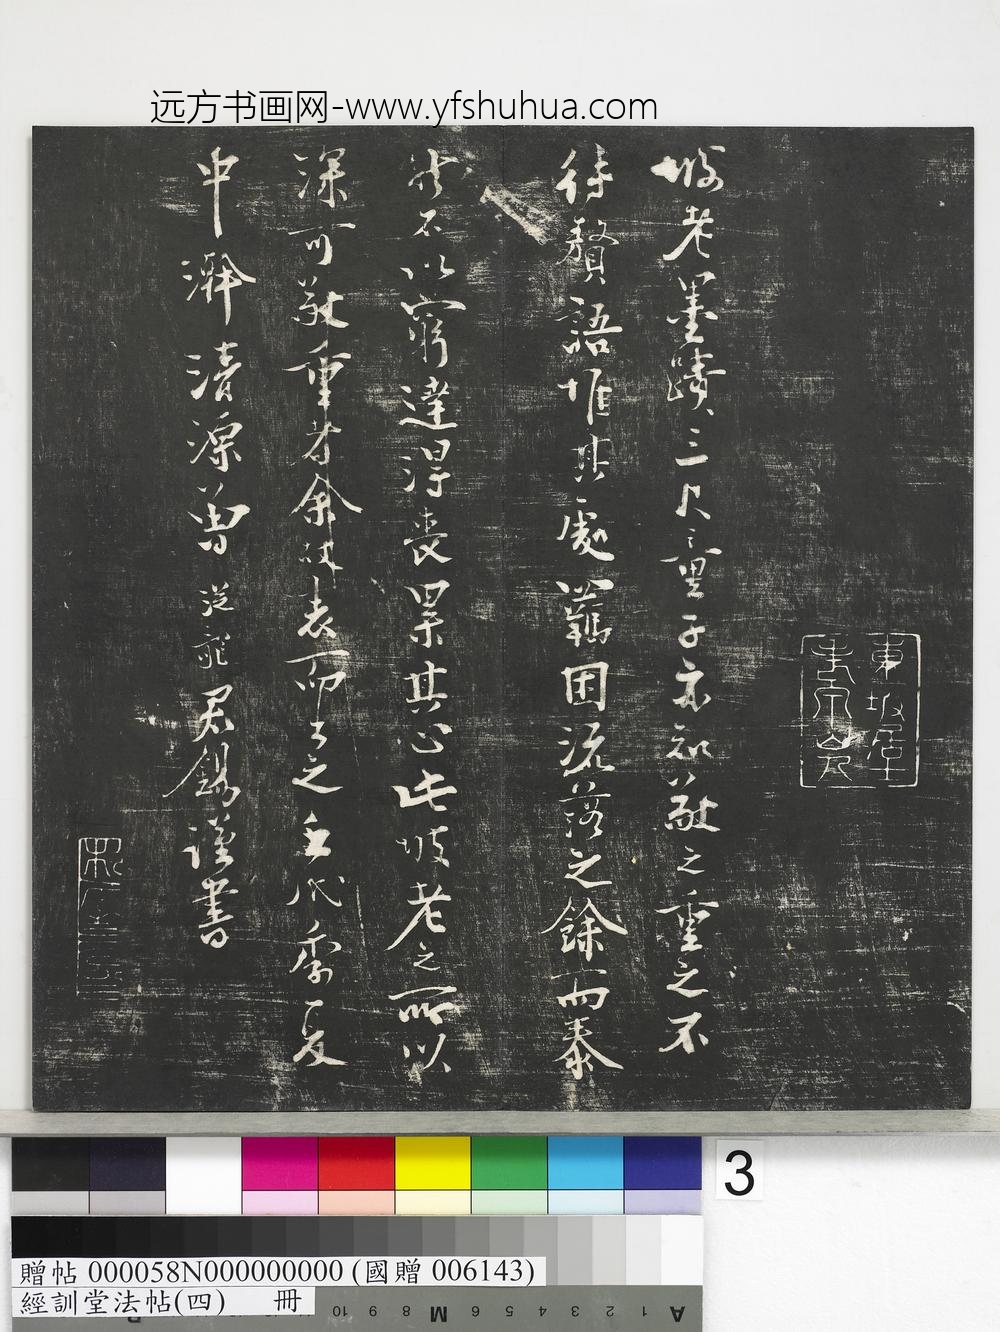 远方书画网-www.yfshuhua.com
坡老墨蹟三尺童子亦知敬之重之不
待贅語惟其處羈困流落之餘而泰
然不以窮達得喪累其心此坡老之所以
深可敬重者余故表而出之至代季夏
中澣清源曾從龍君錫謹書
3
贈帖 000058N000000000 (國贈 006143)
經訓堂法帖(四) 冊
A 1 2 3 4 5 6 M 8 9 10